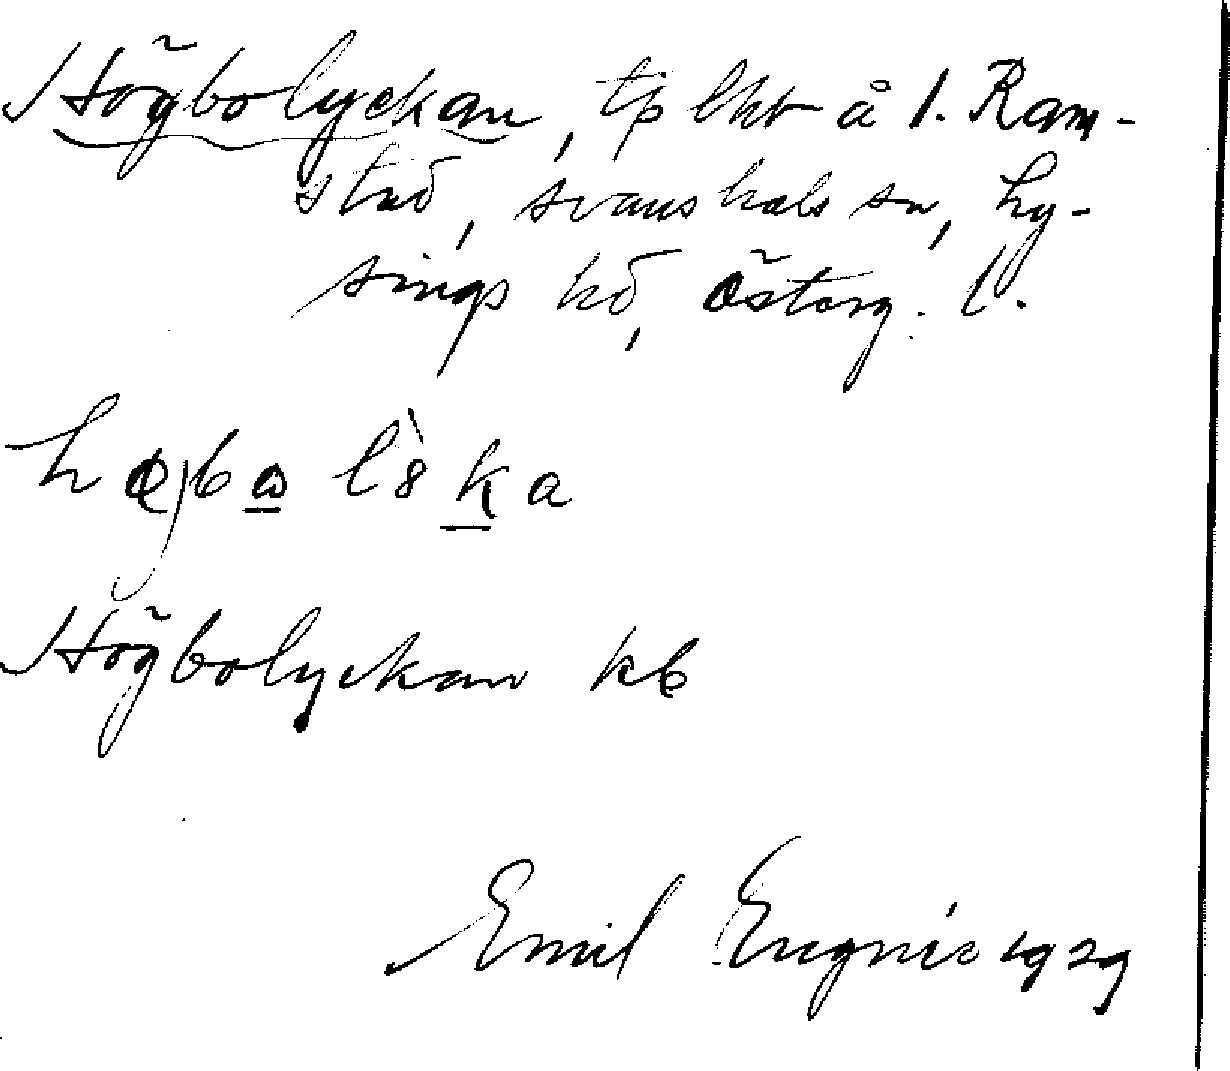 Högbolyckan, tp lht å 1. Ram-
stad, Svanshals sn, Ly-
sings hd, Österg. l.
Högbolyckan kb
Emil Engnis 1929